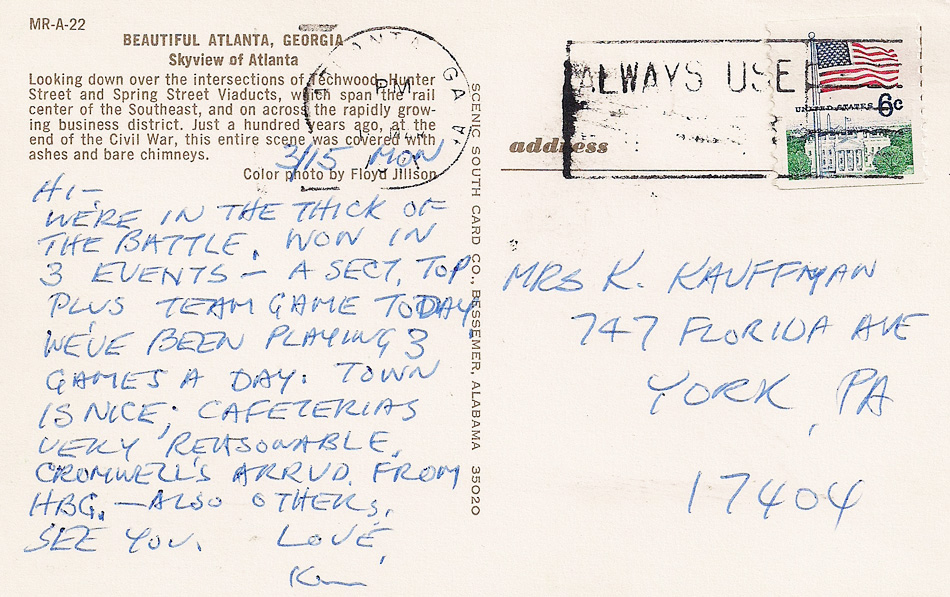 MR-A-22
BEAUTIFUL ATLANTA, GEORGIA
Skyview of Atlanta
Looking down over the intersections of Techwood, Hunter
Street and Spring Street Viaducts, which span the rail
center of the Southeast, and on across the rapidly grow-
ing business district. Just a hundred years ago, at the
end of the Civil War, this entire scene was covered with
ashes and bare chimneys.
Color photo by Floyd Jillson
3/15 MON
HI—
WE'RE IN THE THICK OF
THE BATTLE. WON IN
3 EVENTS — A SECT. TOP
PLUS TEAM GAME TODAY.
WE'VE BEEN PLAYING 3
GAMES A DAY. TOWN
IS NICE; CAFETERIAS
VERY REASONABLE.
CROMWELL'S ARRVD. FROM
HBG. — ALSO OTHERS.
SEE YOU. LOVE,
SCENIC SOUTH CARD CO., BESSEMER, ALABAMA 35020
ATLANTA GA
PM
ALWAYS USE
UNITED STATES 6c
address
MRS K. KAUFFMAN
747 FLORIDA AVE
YORK, PA
17404